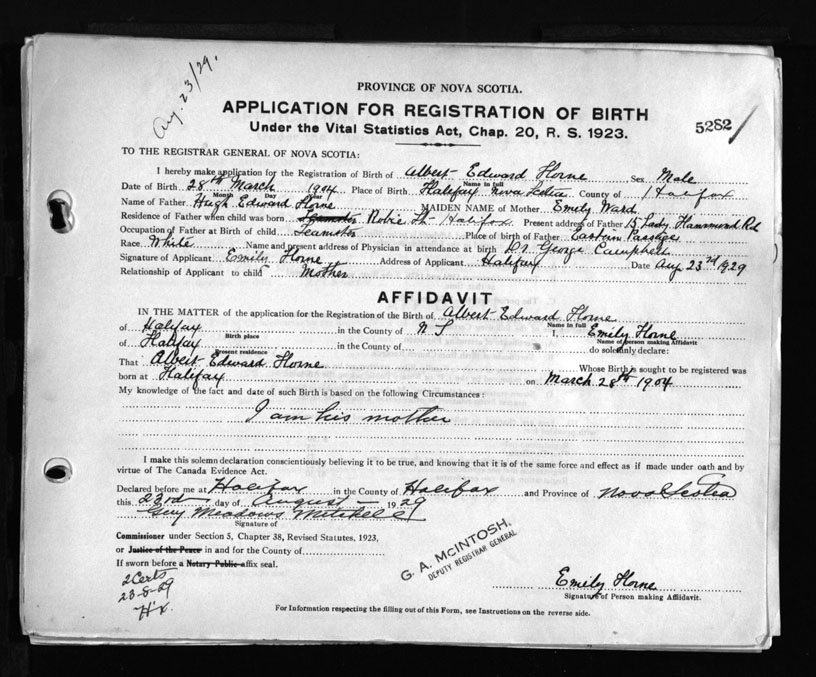 Aug. 23/29.
PROVINCE OF NOVA SCOTIA.
APPLICATION FOR REGISTRATION OF BIRTH
5282
Under the Vital Statistics Act, Chap. 20, R. S. 1923.
TO THE REGISTRAR GENERAL OF NOVA SCOTIA:
I hereby make application for the Registration of Birth of Albert Edward Horne Sex Male
Name in full
Date of Birth 28th March 1904 Place of Birth Halifax Nova Scotia County of Halifax
Month Day Year
Name of Father Hugh Edward Horne MAIDEN NAME of Mother Emily Ward
Residence of Father when child was born Teamster Robie St Halifax Present address of Father 15 Lady Hammond Rd
Occupation of Father at Birth of child Teamster Place of birth of Father Eastern Passage
Race White Name and present address of Physician in attendance at birth Dr. George Campbell
Signature of Applicant Emily Horne Address of Applicant Halifax Date Aug 23rd 1929
Relationship of Applicant to child Mother
AFFIDAVIT
IN THE MATTER of the application for the Registration of the Birth of Albert Edward Horne
Name in full
of Halifax in the County of N S I, Emily Horne
Birth place Name of person making Affidavit
of Halifax in the County of do solemnly declare:
Present residence
That Albert Edward Horne Whose Birth is sought to be registered was
born at Halifax on March 28th 1904
My knowledge of the fact and date of such Birth is based on the following Circumstances:
I am his mother
I make this solemn declaration conscientiously believing it to be true, and knowing that it is of the same force and effect as if made under oath and by
virtue of The Canada Evidence Act.
Declared before me at Halifax in the County of Halifax and Province of Nova Scotia
this 23rd day of August 1929
Guy Meadows Mitchell
Signature of
Commissioner under Section 5, Chapter 38, Revised Statutes, 1923,
or Justice of the Peace in and for the County of
If sworn before a Notary Public affix seal.
G. A. McINTOSH,
DEPUTY REGISTRAR GENERAL
2 Certs
23-8-29
Hx.
Emily Horne
Signature of Person making Affidavit.
For Information respecting the filling out of this Form, see Instructions on the reverse side.